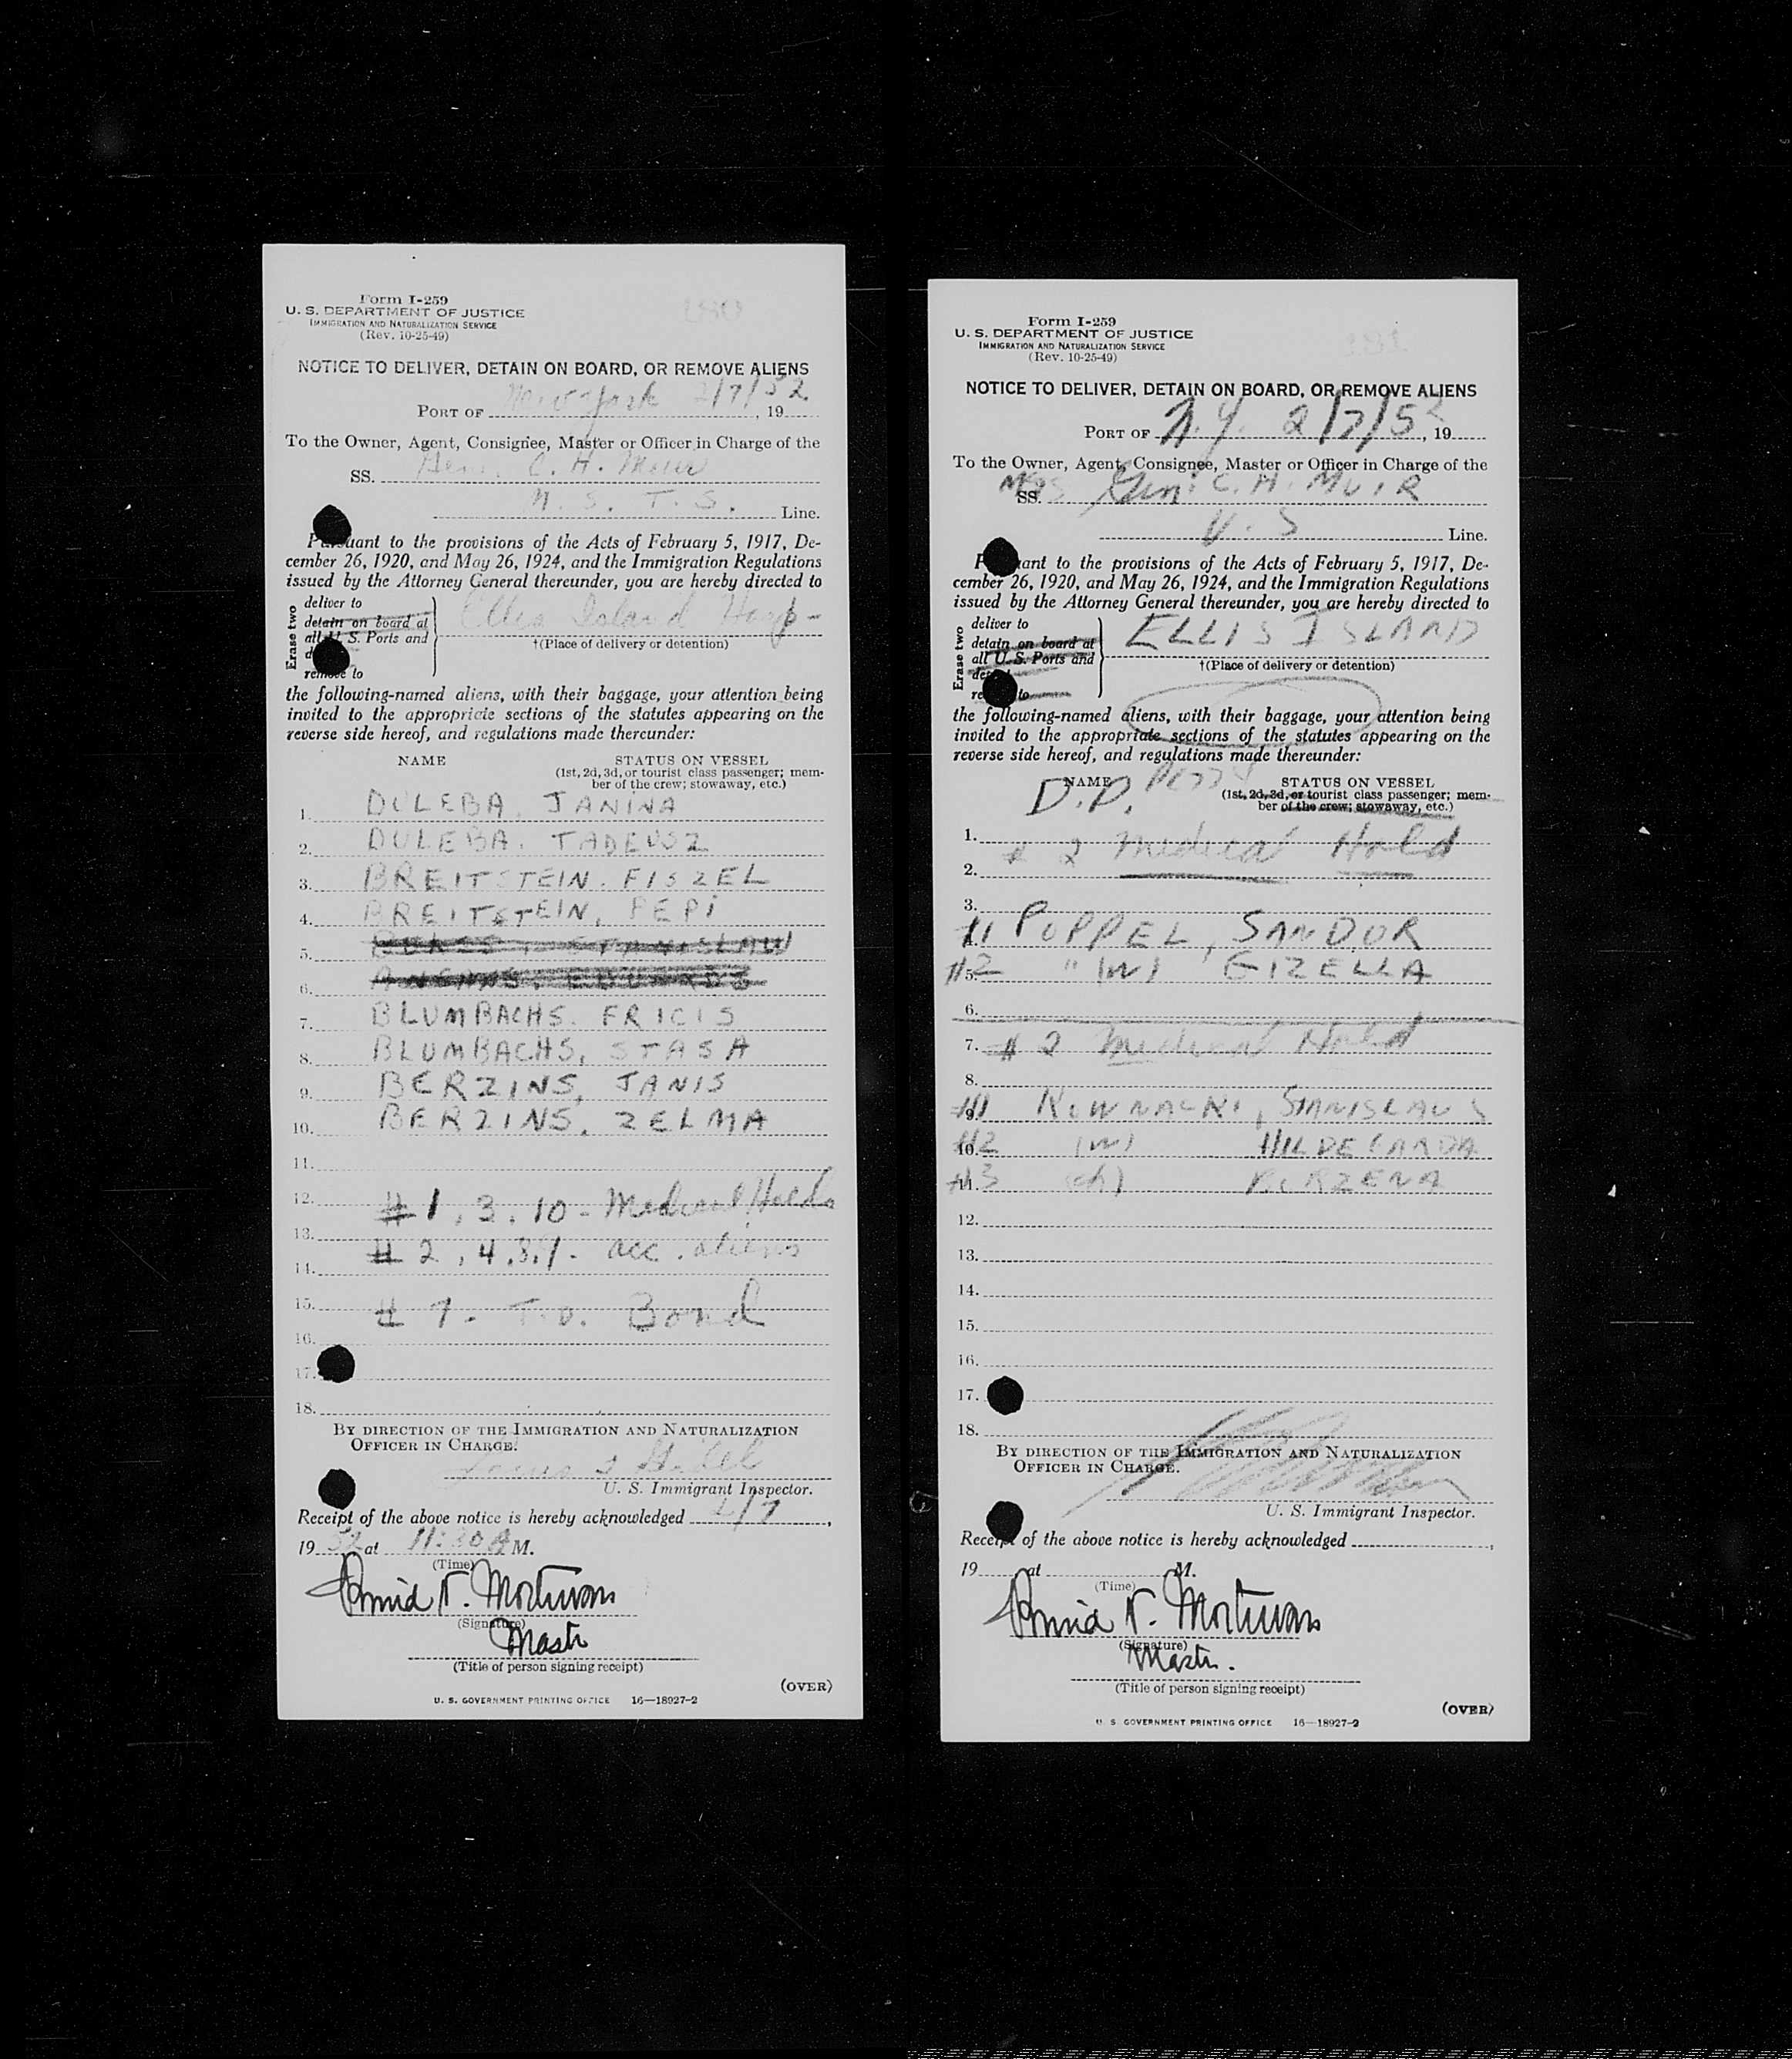 180
Form I-259
U. S. DEPARTMENT OF JUSTICE
IMMIGRATION AND NATURALIZATION SERVICE
(Rev. 10-25-49)
NOTICE TO DELIVER, DETAIN ON BOARD, OR REMOVE ALIENS
PORT OF New York 2/7/52, 19
To the Owner, Agent, Consignee, Master or Officer in Charge of the
SS. Gen. C. H. Muir
M. S. T. S. Line.
Pursuant to the provisions of the Acts of February 5, 1917, De-
cember 26, 1920, and May 26, 1924, and the Immigration Regulations
issued by the Attorney General thereunder, you are hereby directed to
Erase two
deliver to
detain on board at
all U. S. Ports and
remove to
Ellis Island Hosp-
†(Place of delivery or detention)
the following-named aliens, with their baggage, your attention being
invited to the appropriate sections of the statutes appearing on the
reverse side hereof, and regulations made thereunder:
NAME STATUS ON VESSEL
(1st, 2d, 3d, or tourist class passenger; mem-
ber of the crew; stowaway, etc.)
1. DULEBA. JANINA
2. DULEBA. TADEUSZ
3. BREITSTEIN. FISZEL
4. BREITSTEIN, PEPI
5. STANISLAW
6.
7. BLUMBACHS. FRICIS
8. BLUMBACHS, STASA
9. BERZINS, JANIS
10. BERZINS, ZELMA
11.
12. #1, 3, 10 - Medical Holds
13.
14. # 2, 4, 8, 9 - acc. aliens
15. # 7 - Bond
16.
17.
18.
BY DIRECTION OF THE IMMIGRATION AND NATURALIZATION
OFFICER IN CHARGE.
U. S. Immigrant Inspector.
Receipt of the above notice is hereby acknowledged 2/7,
19 52 at 11:30 A M.
(Time)
(Signature)
Mastr
(Title of person signing receipt)
(OVER)
U. S. GOVERNMENT PRINTING OFFICE 16—18927-2
181
Form I-259
U. S. DEPARTMENT OF JUSTICE
IMMIGRATION AND NATURALIZATION SERVICE
(Rev. 10-25-49)
NOTICE TO DELIVER, DETAIN ON BOARD, OR REMOVE ALIENS
PORT OF N.Y. 2/7/52, 19
To the Owner, Agent, Consignee, Master or Officer in Charge of the
SS. Gen. C. H. MUIR
U. S Line.
Pursuant to the provisions of the Acts of February 5, 1917, De-
cember 26, 1920, and May 26, 1924, and the Immigration Regulations
issued by the Attorney General thereunder, you are hereby directed to
Erase two
deliver to
detain on board at
all U. S. Ports and
ELLIS ISLAND
†(Place of delivery or detention)
the following-named aliens, with their baggage, your attention being
invited to the appropriate sections of the statutes appearing on the
reverse side hereof, and regulations made thereunder:
NAME STATUS ON VESSEL
D.P.
(1st, 2d, 3d, or tourist class passenger; mem-
ber of the crew; stowaway, etc.)
1.
# 2 Medical Hold
2.
3.
4. #1 POPPEL, SANDOR
5. #2 " (W) GIZELLA
6.
7. # 2 Medical Hold
8.
9. #1 KOWNACKI, STANISLAUS
10. #2 (W) HILDEGARDA
11. #3 (ch)
12.
13.
14.
15.
16.
17.
18.
BY DIRECTION OF THE IMMIGRATION AND NATURALIZATION
OFFICER IN CHARGE.
U. S. Immigrant Inspector.
Receipt of the above notice is hereby acknowledged ,
19 at M.
(Time)
(Signature)
Mastr.
(Title of person signing receipt)
(OVER)
U. S. GOVERNMENT PRINTING OFFICE 16—18927-2